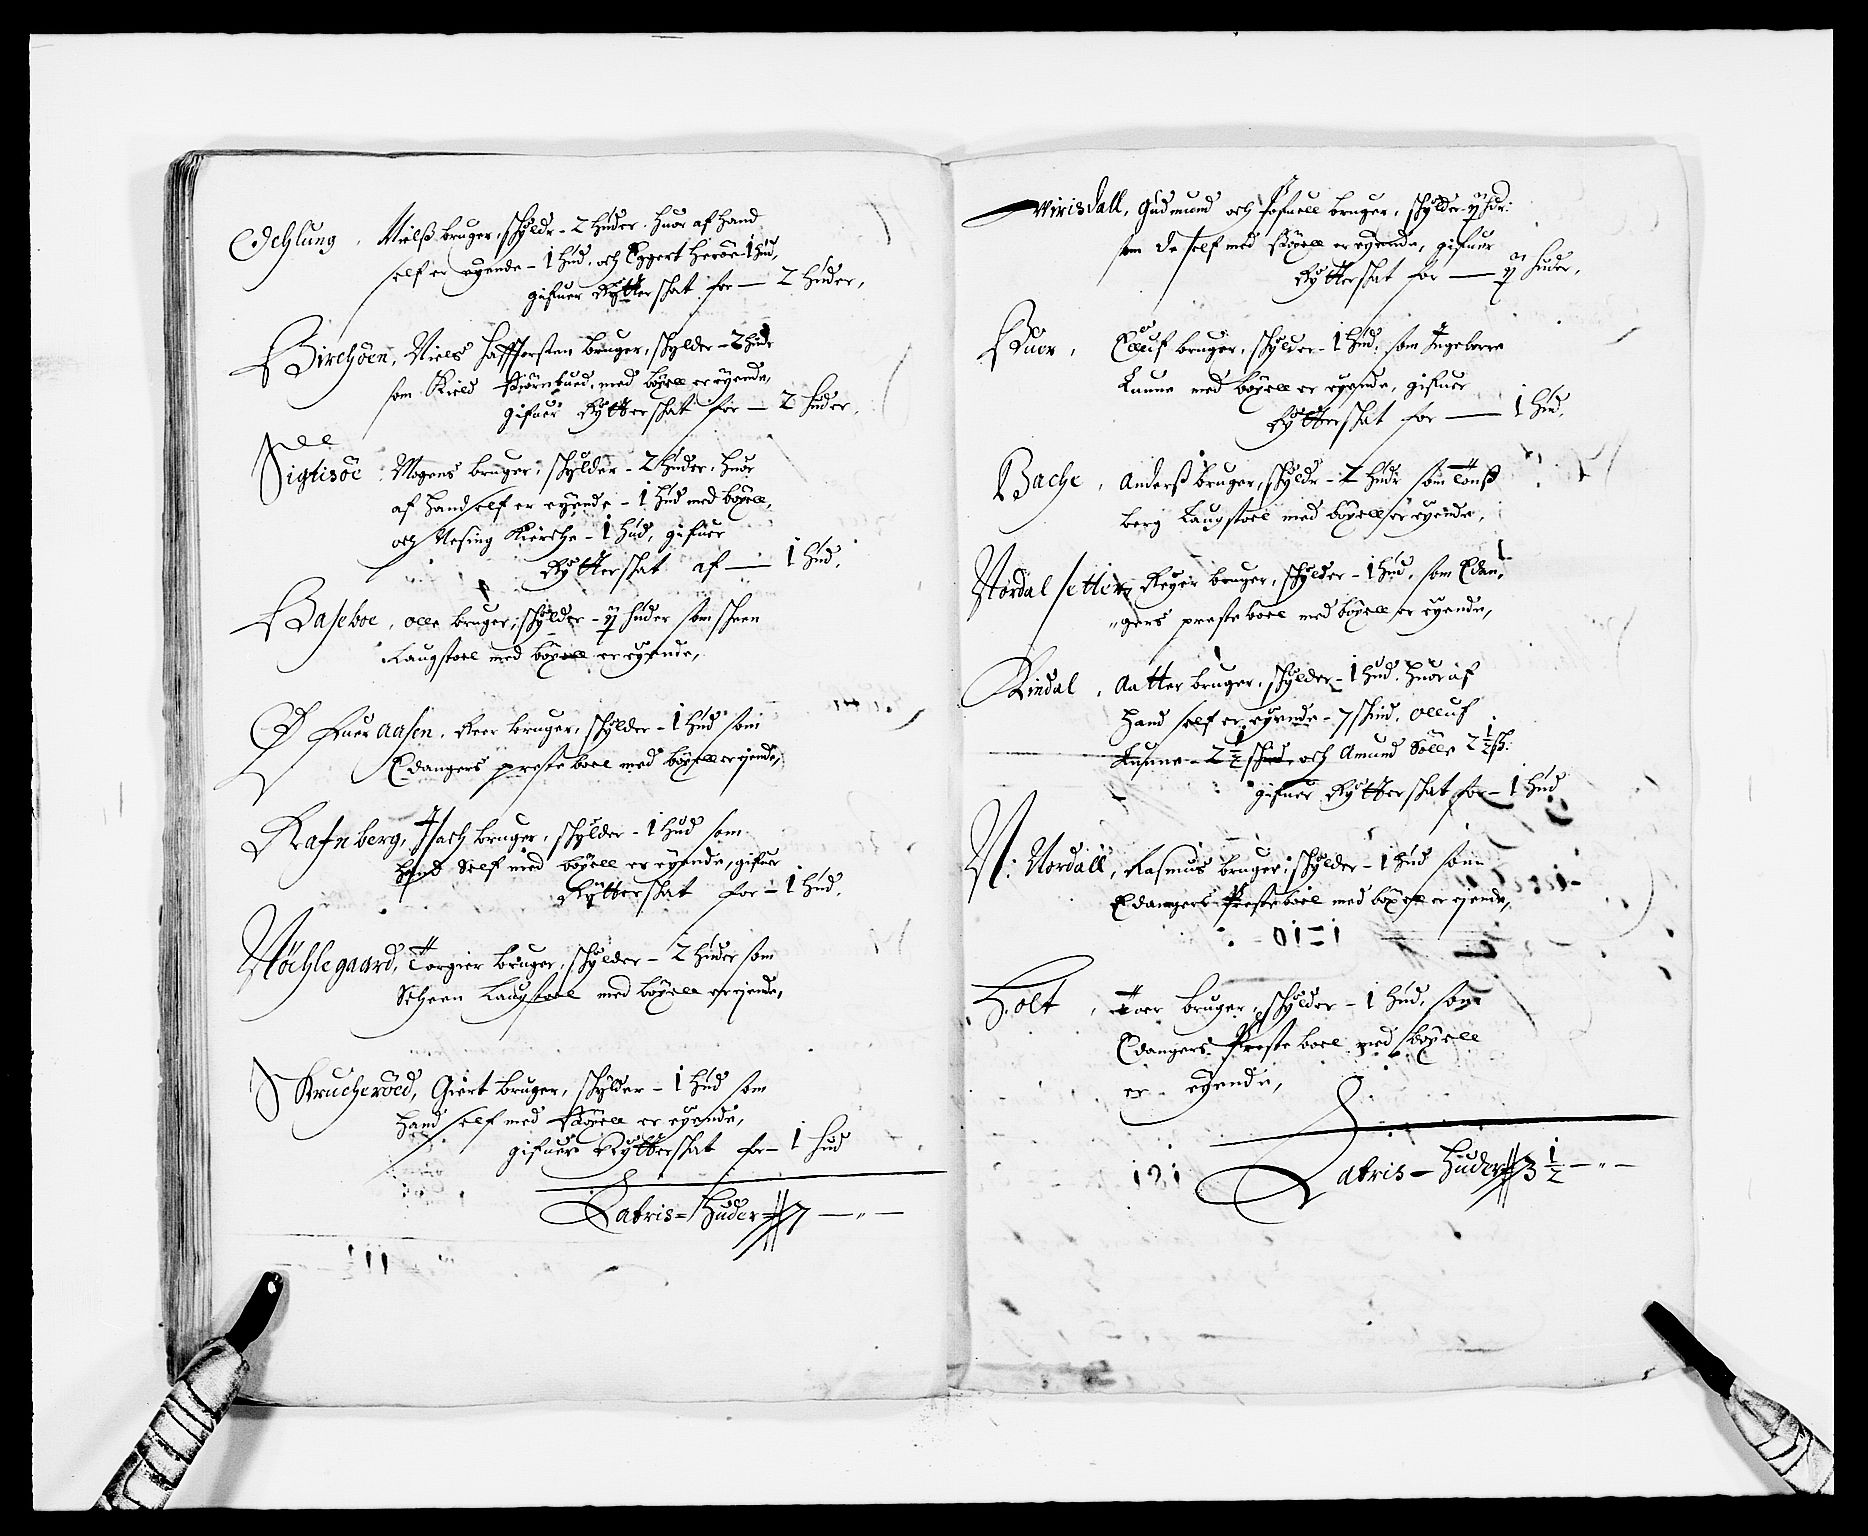 Oehlung, Nielß bruger, skylder - 2 huder, huor af hand
self er eyende - 1 hud, och Eggert Herøe 1 hud,
gifuer Rytterskat for — 2 huder,
Birchöen, Niels Haffthorsten bruger, skylder - 2 huder
som Kield med böxell er eyende,
gifuer Rytterskat for — 2 huder,
Siglisöe, Mogens bruger, skylder - 2 huder, huor
af hand self er eyende - 1 hud med böxell,
och Nesing Kierche - 1 hud, gifuer
Rytterskat af — 1 hud,
Baseboe, Olle bruger, skylder - huder som Skeen
Laugstoel med böxell er eyende,
Aasen, Peer bruger, skylder - 1 hud som
Edangers preste boel med böxell er ejende,
Rafnberg, Isach bruger, skylder - 1 hud som
hand Self med böxell er eyende, gifuer
Rytterskat for - 1 hud,
Nöchlegaard, Torgier bruger, skylder - 2 huder som
Scheen Laugstoel med böxell er ejende,
Skrucheröed, Giert bruger, skylder - 1 hud som
hand self med Böxell er eyende,
gifuer Rytterskat for - 1 hud
Latris = Huder 7 — " —
Virisdall, Gudmund och bruger, skylder
som de self med Böxell er eyende, gifuer
Rytterskat for — huder,
Buer, Elluf bruger, skylder - 1 hud, som Ingeborre
Lunne med böxell er eyende, gifuer
Rytterskat for — 1 hud,
Bache, Anderß bruger, skylder - 2 huder som Tonß
berg Laugstoel med böxell er eyende,
Nordal setter, Reyer bruger, skylder - 1 hud, som Edan,
"gers preste boel med böxell er eyende,
Rindal, Aatter bruger, skylder - 1 hud, huor af
hand self er eyende - 7 skind, Olluf
Lunne - 2 1/2 skind och Amund Sölle 2 1/2 sk:
gifuer Rytterskat for - 1 hud
N: Nordall, Rasmus bruger, skylder - 1 hud som
Edangers Presteboel med böxell er ejende,
Holt, Toer bruger, skylder - 1 hud, som
Edangers Preste boel med böxell
er eyende,
Latris - Huder 3 1/2 — " —